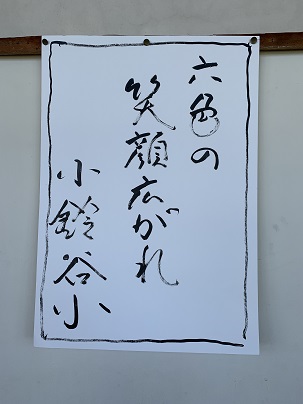 六色の
笑顔広がれ
小鈴谷小